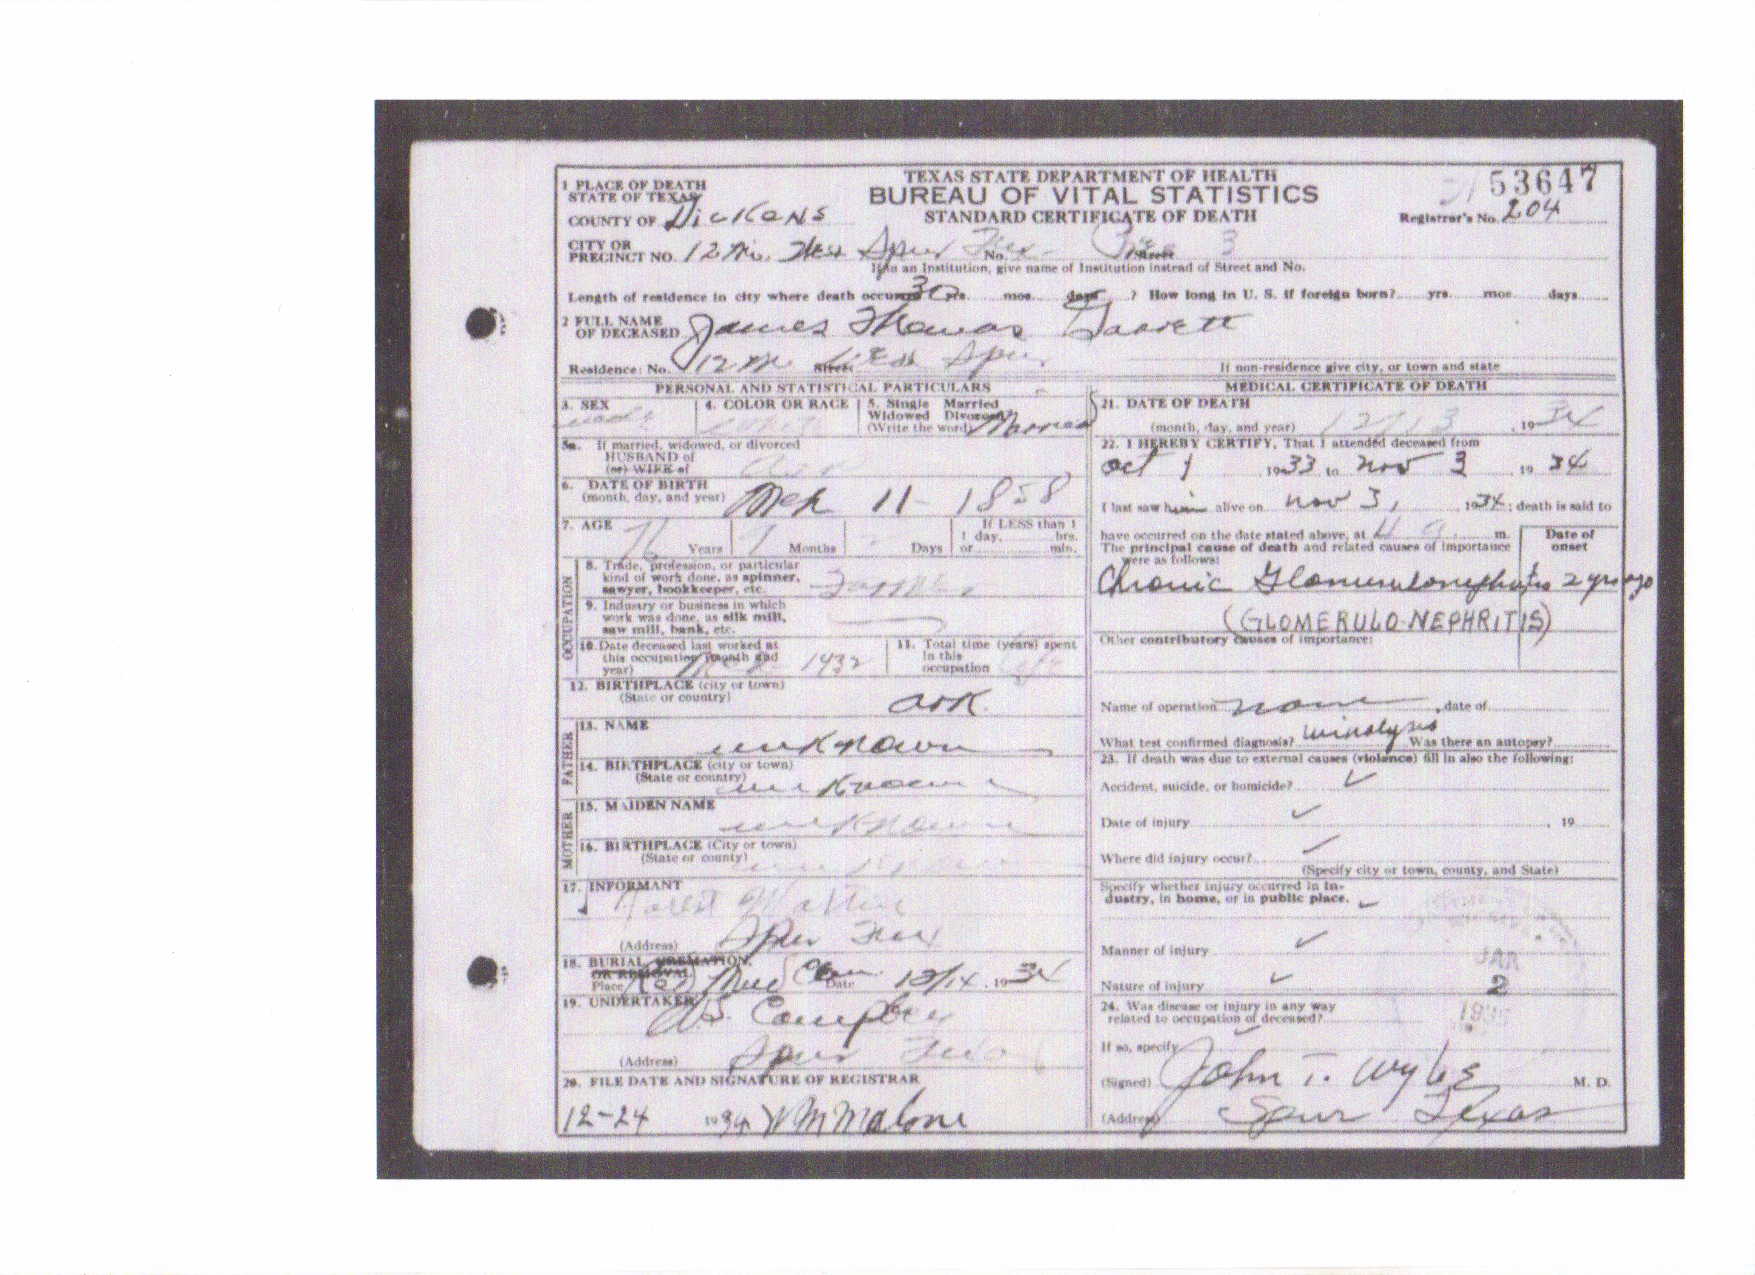 TEXAS STATE DEPARTMENT OF HEALTH
BUREAU OF VITAL STATISTICS
STANDARD CERTIFICATE OF DEATH
53647
Registrar's No. 204
1 PLACE OF DEATH
STATE OF TEXAS
COUNTY OF Dickens
CITY OR
PRECINCT NO. 12 Mi. West Spur Tex No. Street 3
If in an Institution, give name of Institution instead of Street and No.
Length of residence in city where death occurred 30 yrs. mos. days ? How long in U. S. if foreign born? yrs. mos. days
2 FULL NAME
OF DECEASED James Thomas Garrett
Residence: No. 12 M Street West Spur
If non-residence give city, or town and state
PERSONAL AND STATISTICAL PARTICULARS
3. SEX male
4. COLOR OR RACE white
5. Single Married
Widowed Divorced
(Write the word) Married
5a. If married, widowed, or divorced
HUSBAND of
(or) WIFE of
6. DATE OF BIRTH
(month, day, and year) Mch 11 - 1858
7. AGE 76 Years 9 Months 2 Days
If LESS than 1
1 day, hrs.
or min.
OCCUPATION
8. Trade, profession, or particular
kind of work done, as spinner,
sawyer, bookkeeper, etc. Farmer
9. Industry or business in which
work was done, as silk mill,
saw mill, bank, etc.
10. Date deceased last worked at
this occupation (month and
year) 1932
11. Total time (years) spent
in this
occupation
12. BIRTHPLACE (city or town)
(State or country) Ark.
FATHER
13. NAME
unknown
14. BIRTHPLACE (city or town)
(State or country) unknown
MOTHER
15. MAIDEN NAME
unknown
16. BIRTHPLACE (City or town)
(State or county) unknown
17. INFORMANT
(Address) Spur Tex
18. BURIAL, CREMATION,
OR REMOVAL
Place Red Mud Cem. Date 12/14, 1934
19. UNDERTAKER
Campbell
(Address) Spur Texas
20. FILE DATE AND SIGNATURE OF REGISTRAR
12-24 1934 Malone
MEDICAL CERTIFICATE OF DEATH
21. DATE OF DEATH
(month, day, and year) 12/13, 1934
22. I HEREBY CERTIFY, That I attended deceased from
Oct 1, 1933 to Nov 3, 1934
I last saw him alive on Nov 3, 1934; death is said to
have occurred on the date stated above, at 4 a. m.
The principal cause of death and related causes of importance
were as follows:
Date of
onset
Chronic Glomerulonephritis 2 yrs ago
(GLOMERULO-NEPHRITIS)
Other contributory causes of importance:
Name of operation none, date of
What test confirmed diagnosis? urinalysis Was there an autopsy?
23. If death was due to external causes (violence) fill in also the following:
Accident, suicide, or homicide?
Date of injury , 19
Where did injury occur?
(Specify city or town, county, and State)
Specify whether injury occurred in in-
dustry, in home, or in public place.
Manner of injury
Nature of injury
JAN
2
1935
24. Was disease or injury in any way
related to occupation of deceased?
If so, specify
(Signed) John T. Wylie M. D.
(Address) Spur Texas